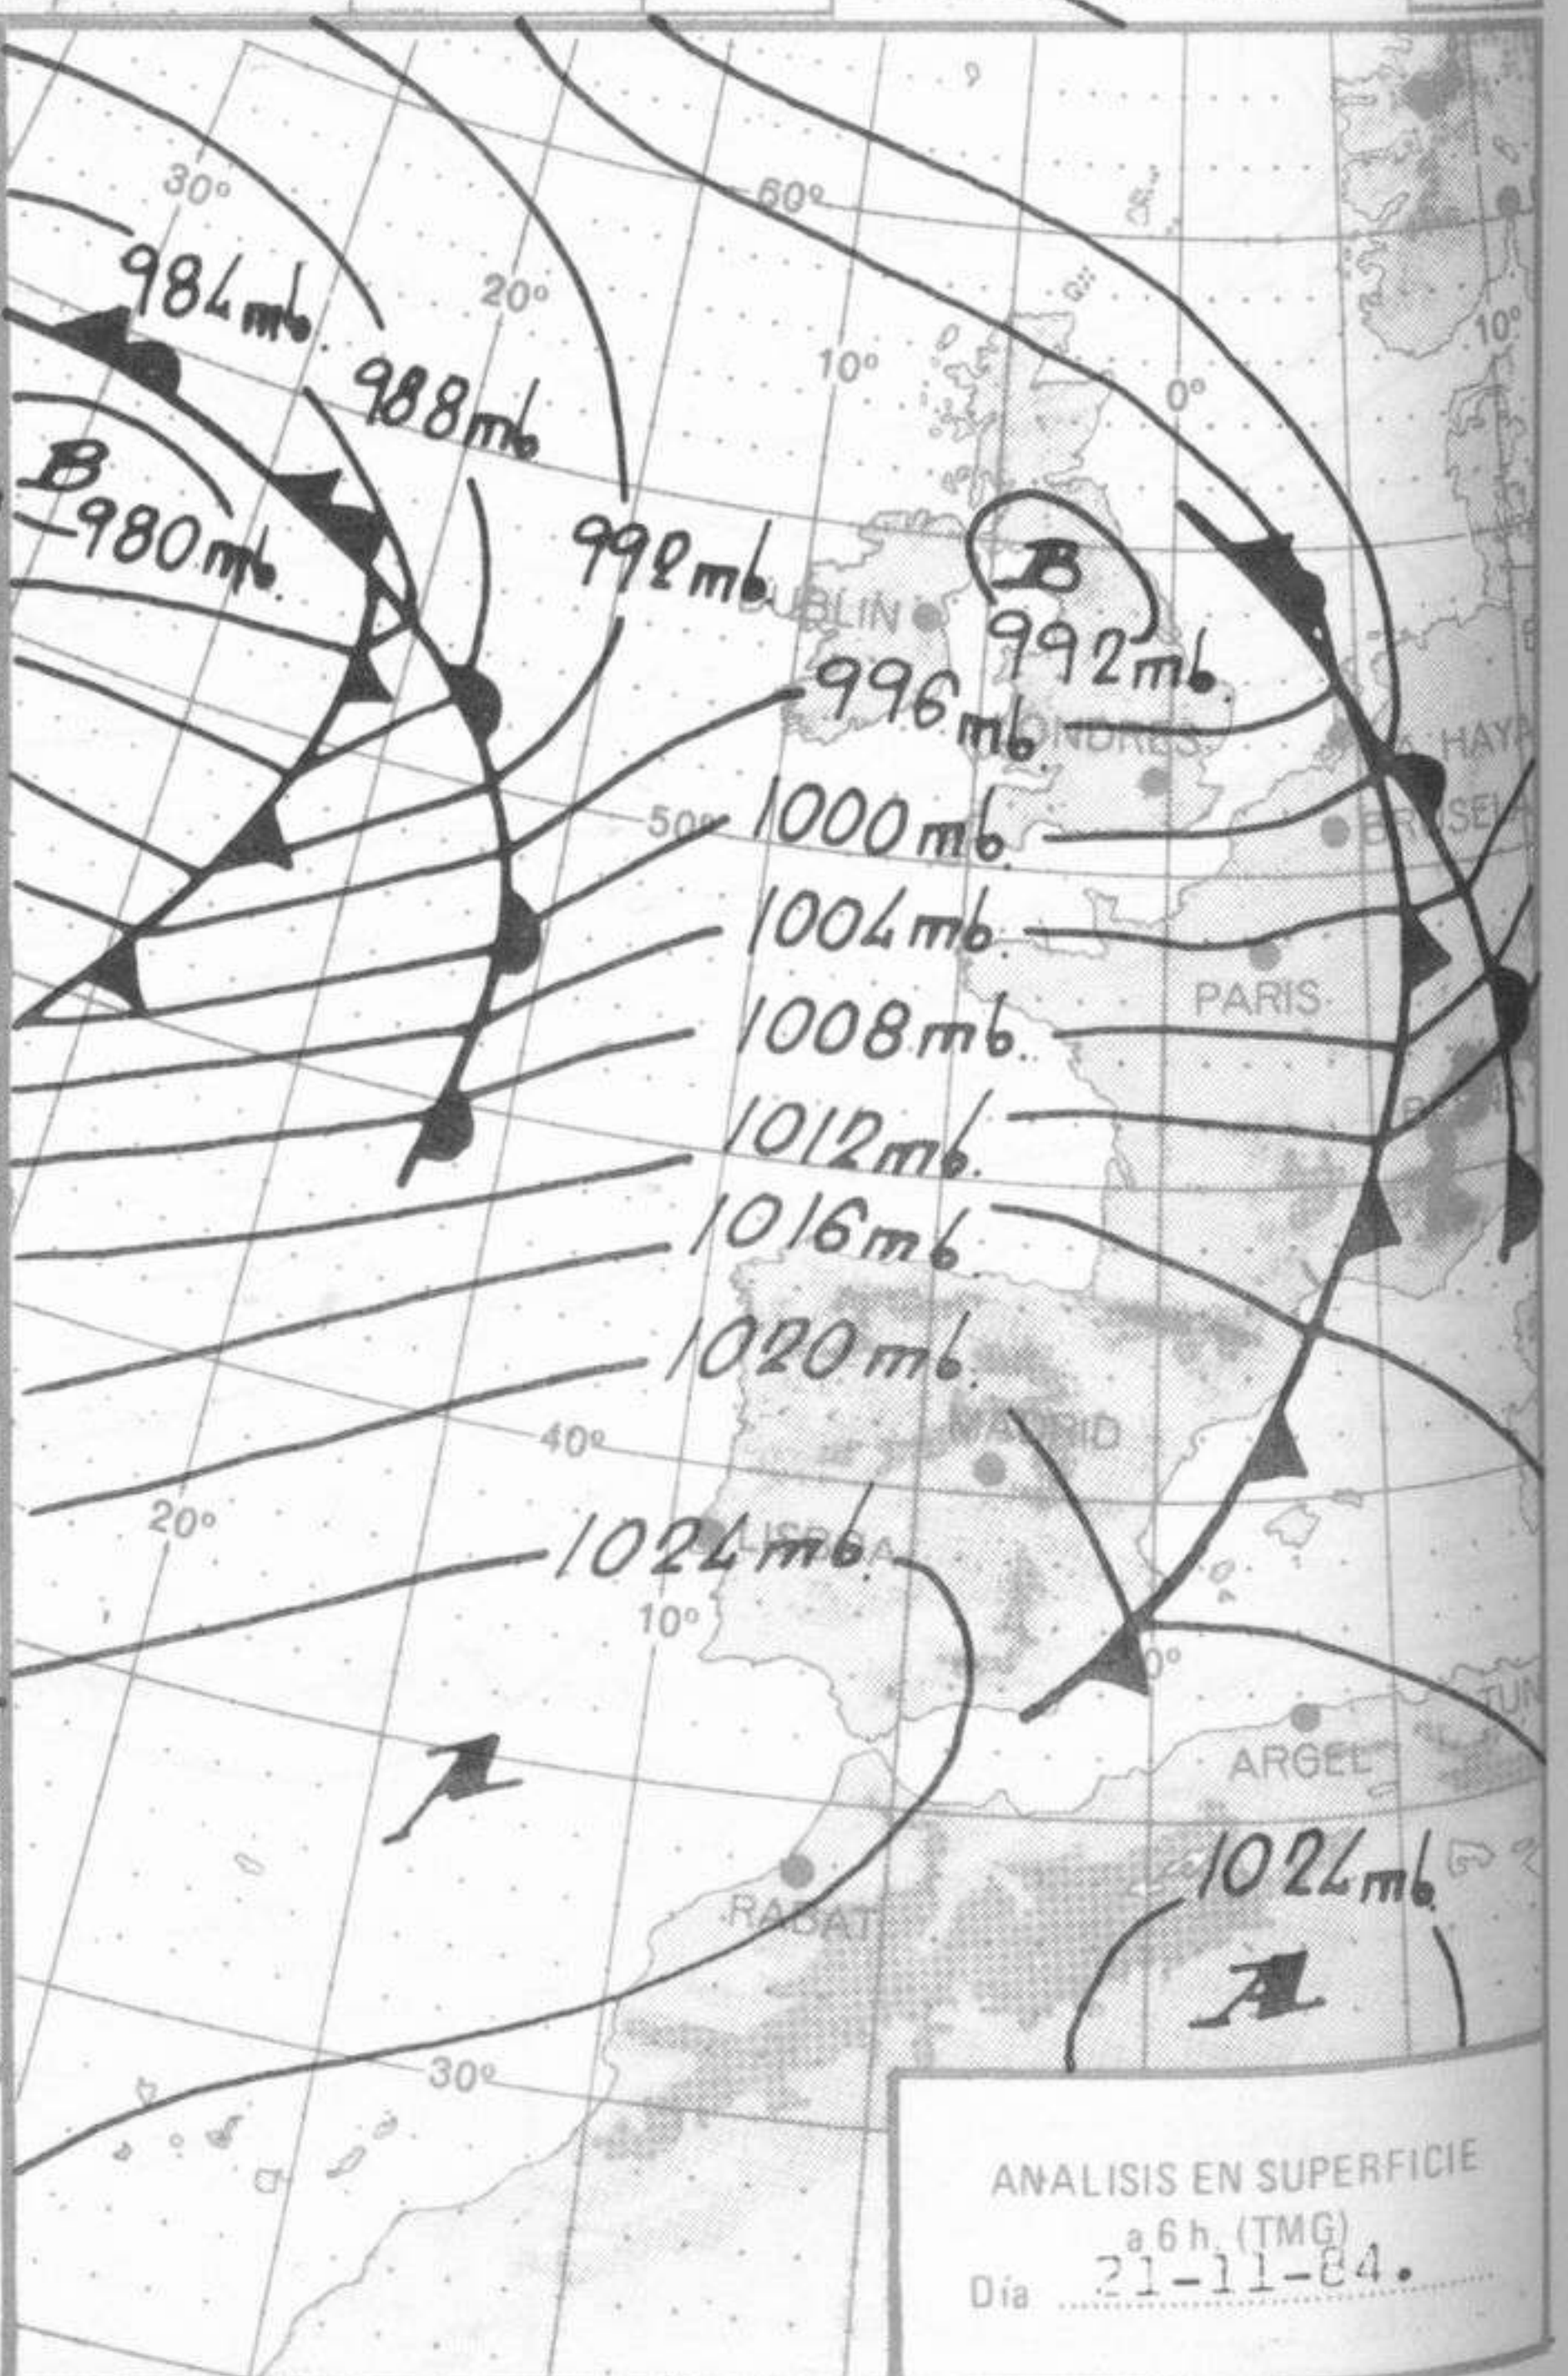 60º
30º
984 mb.
20º
10º
10º
988 mb.
0º
B
980 mb.
992 mb.
B
DUBLIN
992 mb.
996 mb.
LONDRES
HAYA
50º
1000 mb.
BRUSELAS
1004 mb.
PARIS
1008 mb.
1012 mb.
1016 mb.
1020 mb.
MADRID
40º
20º
1024 mb.
LISBOA
10º
0º
TUN
A
ARGEL
1024 mb.
RABAT
A
30º
ANALISIS EN SUPERFICIE
a 6 h. (TMG)
Día 21-11-84.